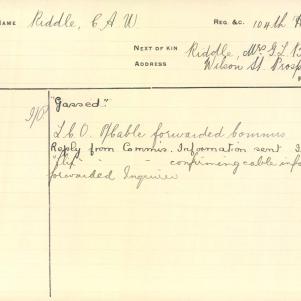 NAME Riddle, C A W REG. &C. 104th
NEXT OF KIN Riddle, Mrs G. L.
ADDRESS Wilson St. Prosp
"Gassed."
L.C.O. Cable forwarded Commis
Reply from Commis. Information sent
confirming cable info
forwarded Inquirer